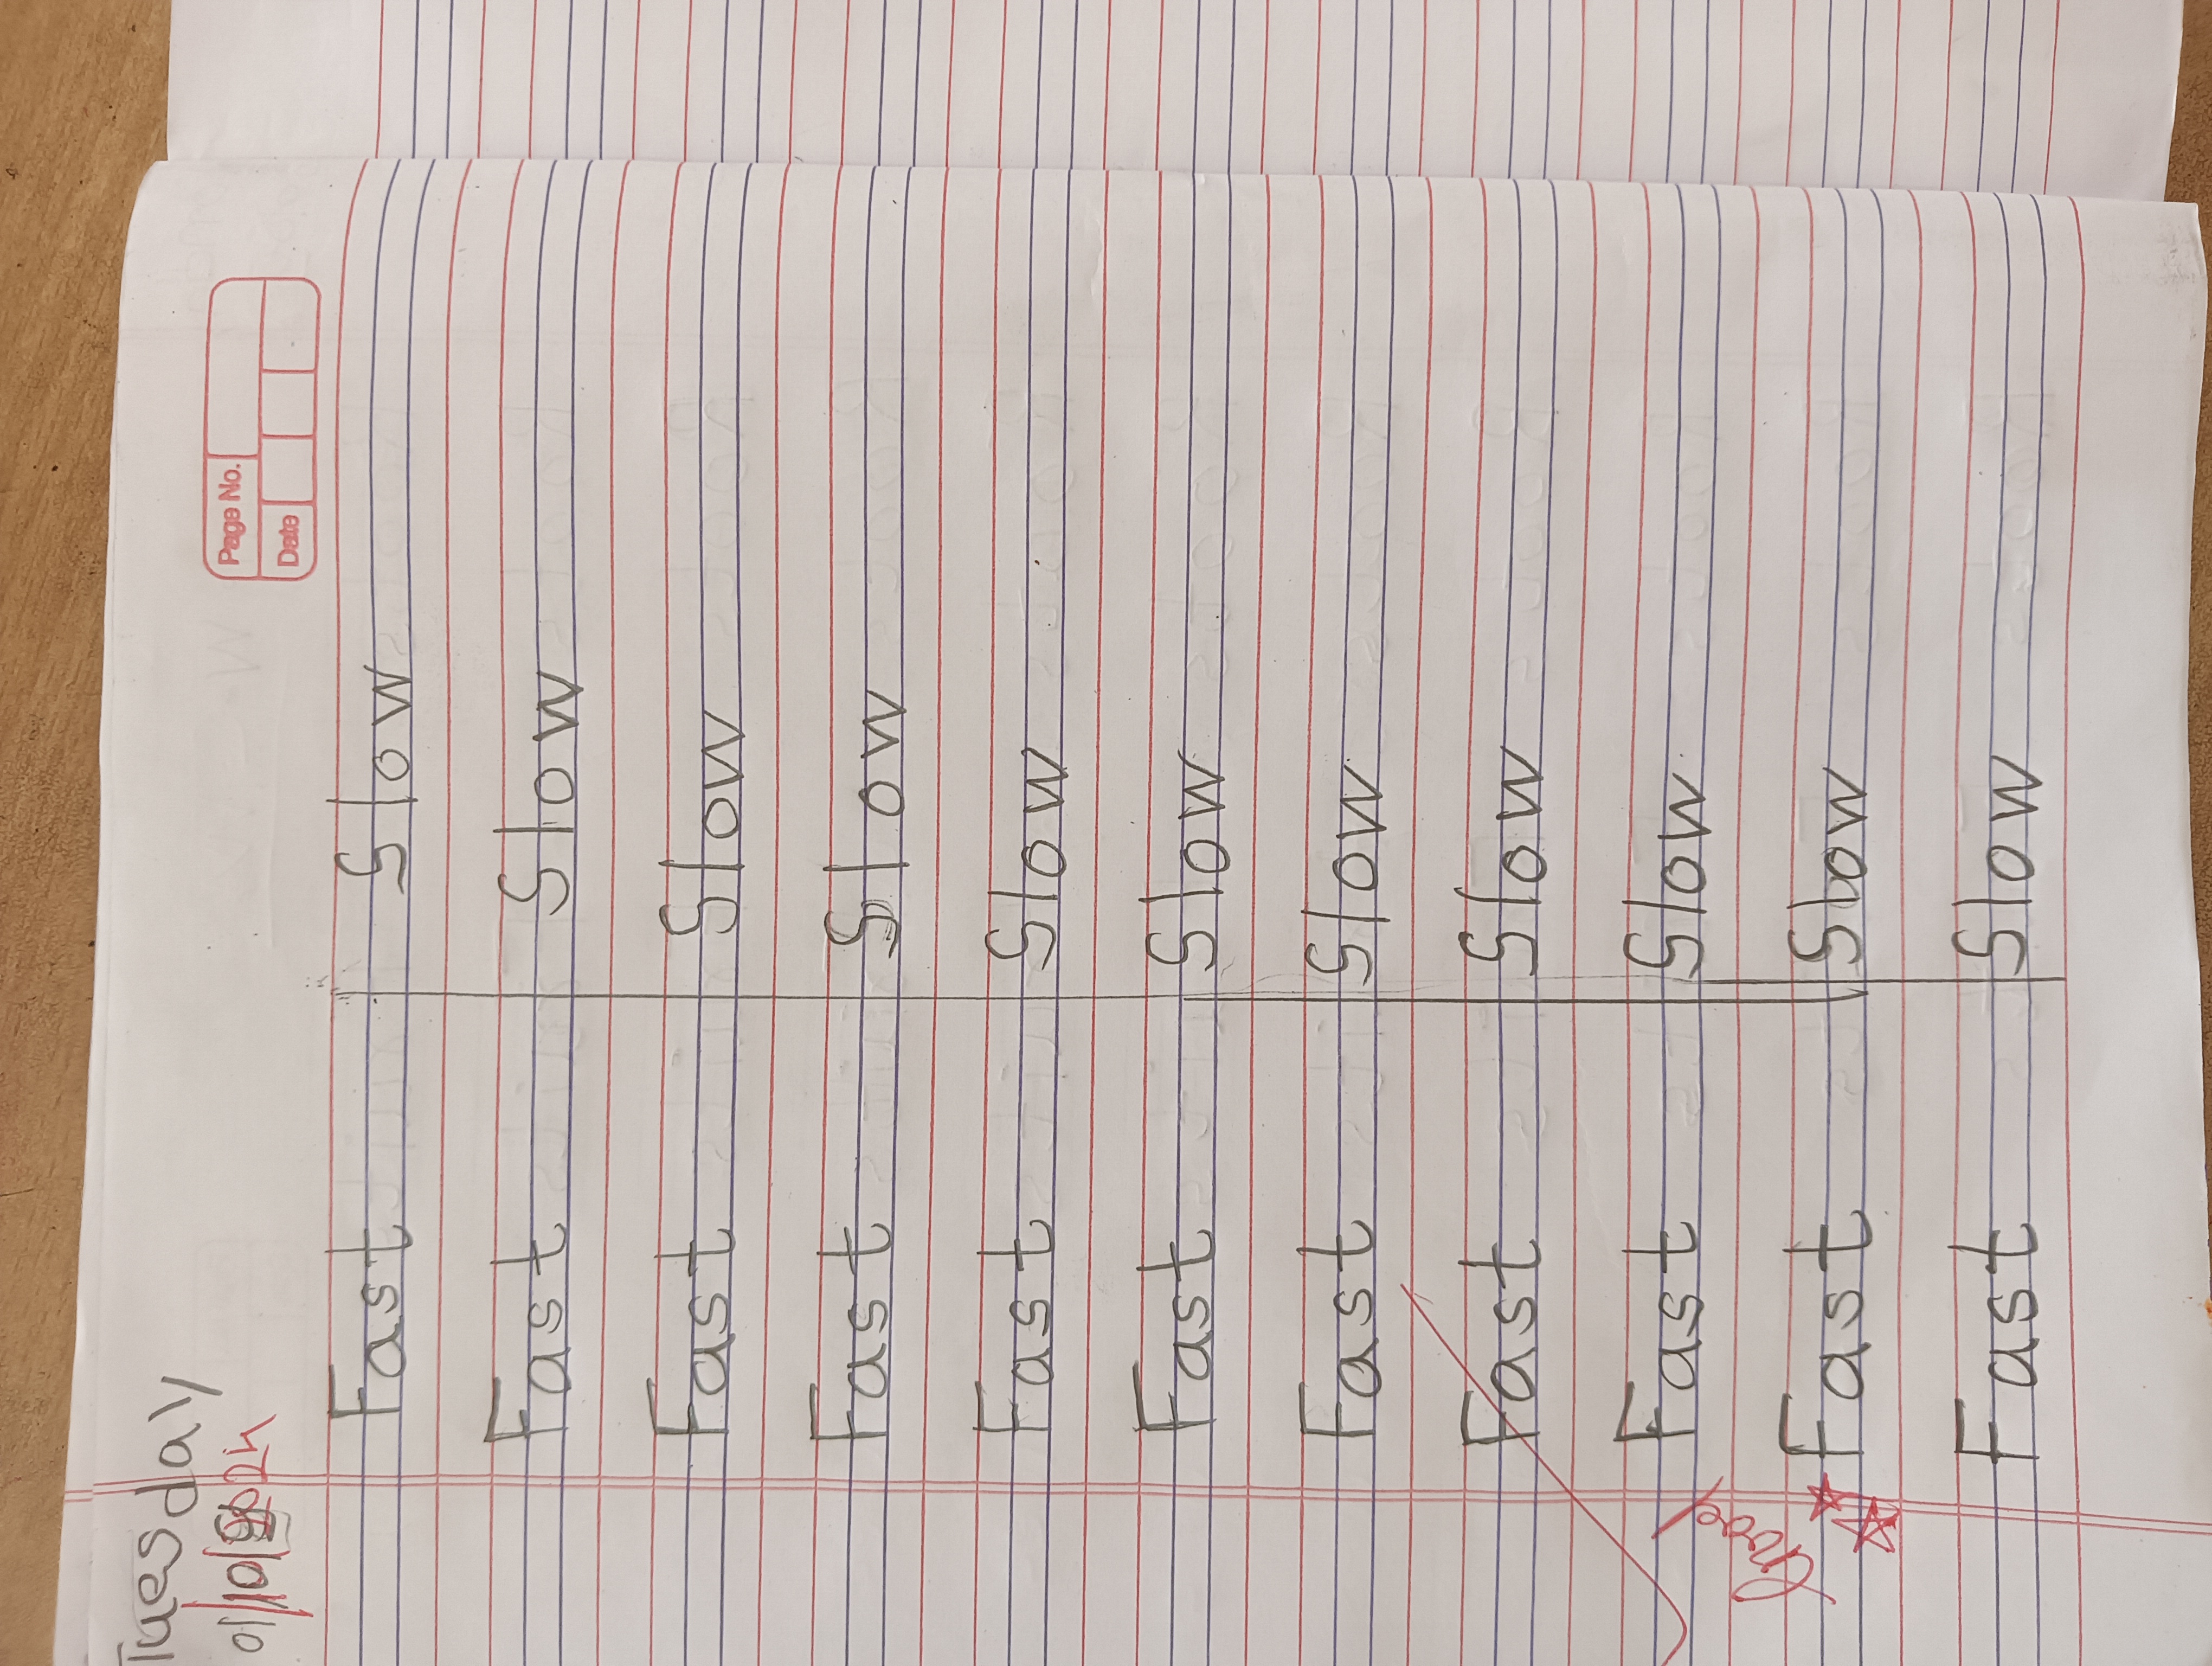 Tuesday
Page No.
01/10/2024
Date
Fast Slow
Fast Slow
Fast Slow
Fast Slow
Fast Slow
Fast Slow
Fast Slow
Fast Slow
Fast Slow
Good
Fast Slow
Fast Slow